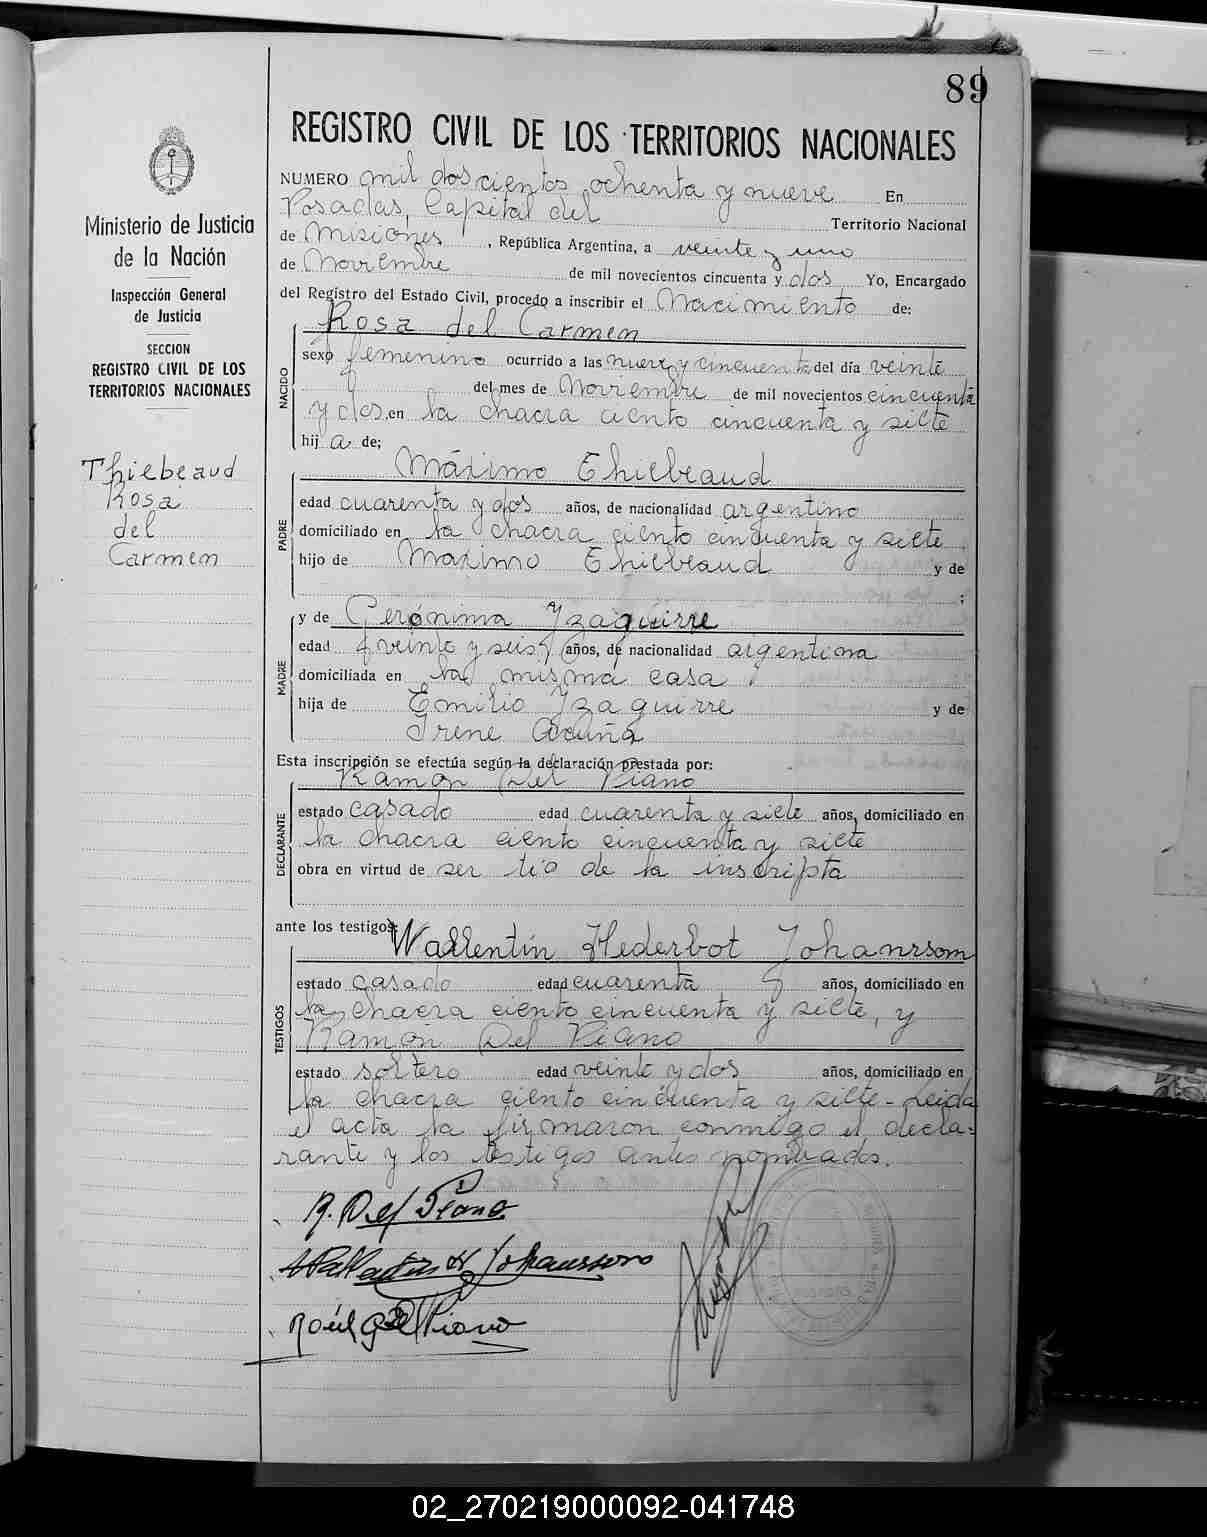 89
REGISTRO CIVIL DE LOS TERRITORIOS NACIONALES
NUMERO mil doscientos ochenta y nueve En
Posadas, Capital del Territorio Nacional
de Misiones, República Argentina, a veinte y uno
de Noviembre de mil novecientos cincuenta y dos Yo, Encargado
del Registro del Estado Civil, procedo a inscribir el Nacimiento de:
Rosa del Carmen
NACIDO
sexo femenino ocurrido a las nueve y cincuenta del día veinte
del mes de Noviembre de mil novecientos cincuenta
y dos, en la chacra ciento cincuenta y siete
hij a de;
Máximo Thiebeaud
PADRE
edad cuarenta y dos años, de nacionalidad argentino
domiciliado en la chacra ciento cincuenta y siete
hijo de Maximo Thiebeaud y de
;
y de Gerónima Yzaguirre
MADRE
edad veinte y seis años, de nacionalidad argentina
domiciliada en la misma casa
hija de Emilio Yzaguirre y de
Irene Acuña
Esta inscripción se efectúa según la declaración prestada por:
Ramon Del Piano
DECLARANTE
estado casado edad cuarenta y siete años, domiciliado en
la chacra ciento cincuenta y siete
obra en virtud de ser tío de la inscripta
ante los testigos: Wallentin Hederbot Johanssom
TESTIGOS
estado casado edad cuarenta años, domiciliado en
la chacra ciento cincuenta y siete, y
Ramón Del Piano
estado soltero edad veinte y dos años, domiciliado en
la chacra ciento cincuenta y siete - Leida
el acta la firmaron conmigo el decla-
rante y los testigos antes nombrados.
R. Del Piano
Wallentin H Johansson
Raúl G Del Piano
Ministerio de Justicia
de la Nación
Inspección General
de Justicia
SECCION
REGISTRO CIVIL DE LOS
TERRITORIOS NACIONALES
Thiebeaud
Rosa
del
Carmen
02_270219000092-041748